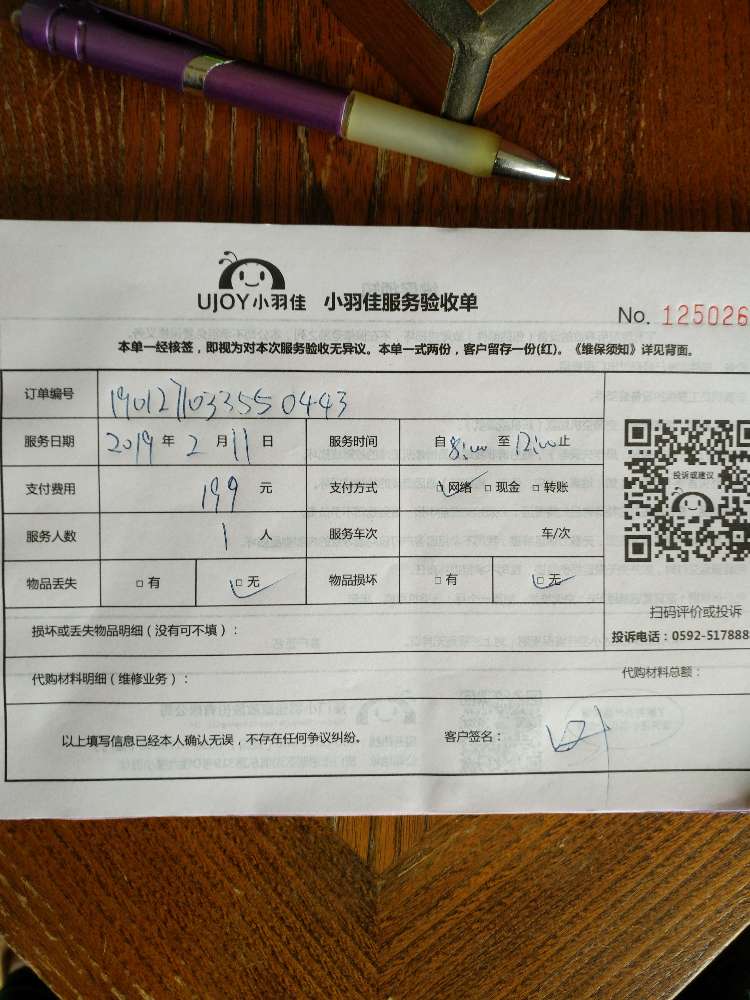 UJOY小羽佳 小羽佳服务验收单
No. 125026
本单一经核签，即视为对本次服务验收无异议。本单一式两份，客户留存一份(红)。《维保须知》详见背面。
订单编号 1901271033550443
服务日期 2019 年 2 月 11 日 服务时间 自 8:00 至 12:00 止
支付费用 199 元 支付方式 □网络 □现金 □转账
服务人数 1 人 服务车次 车/次
物品丢失 □有 □无 物品损坏 □有 □无
投诉或建议
扫码评价或投诉
投诉电话：0592-517888
损坏或丢失物品明细（没有可不填）：
代购材料明细（维修业务）： 代购材料总额：
以上填写信息已经本人确认无误，不存在任何争议纠纷。 客户签名：